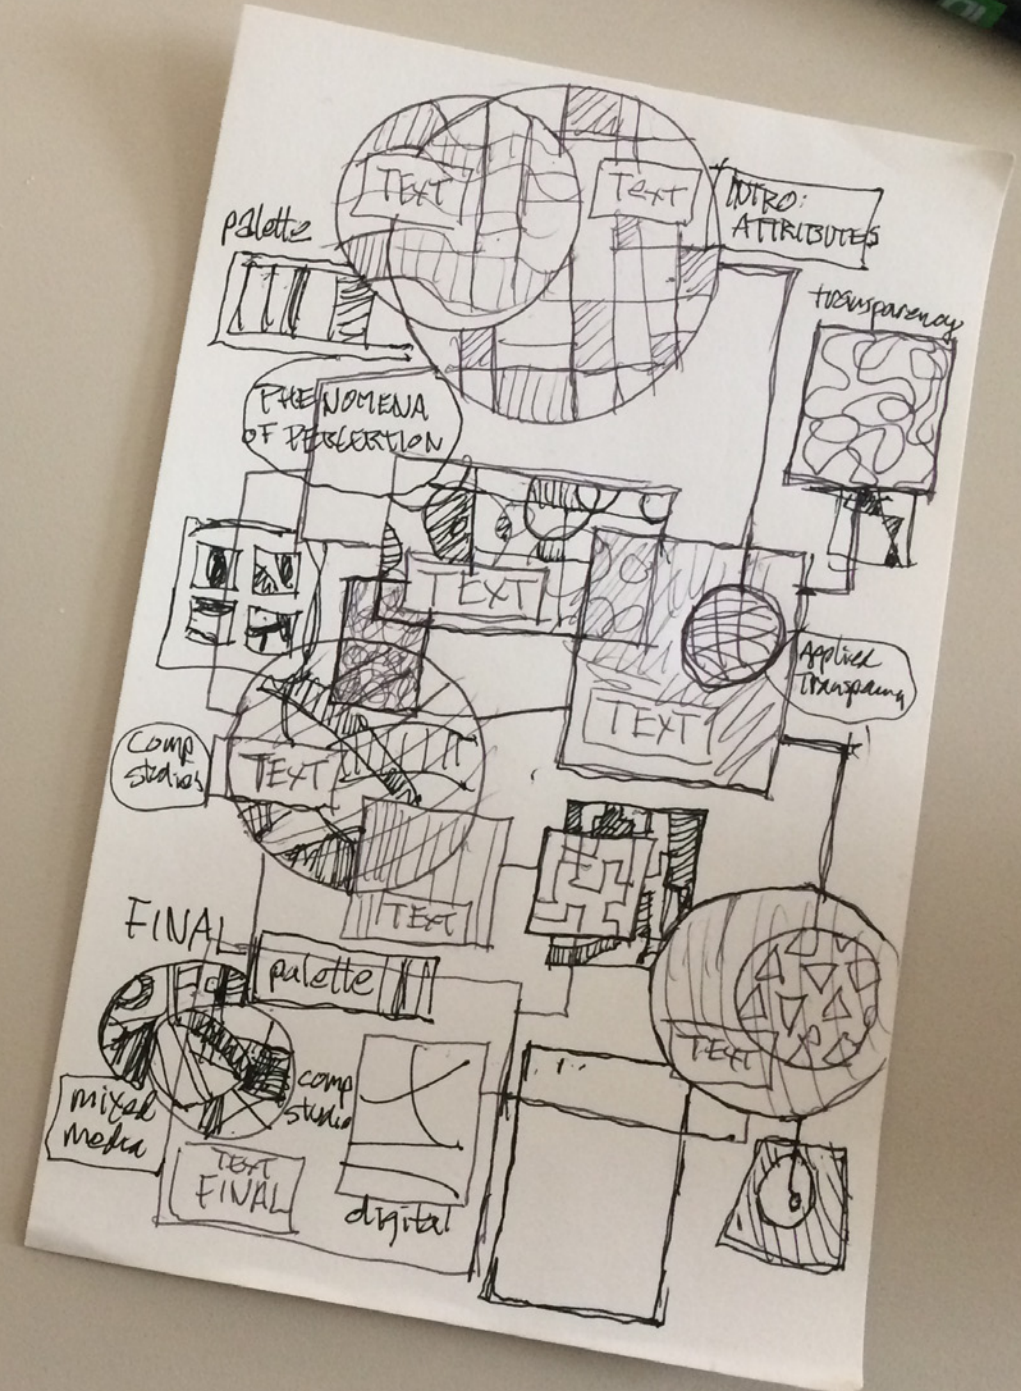 TEXT
TEXT
INTRO:
ATTRIBUTES
palette
transparency
PHENOMENA
OF PERCEPTION
TEXT
Applied
TEXT
Comp
studies
TEXT
TEXT
FINAL
palette
TEXT
comp
mixed
media
TEXT
FINAL
digital